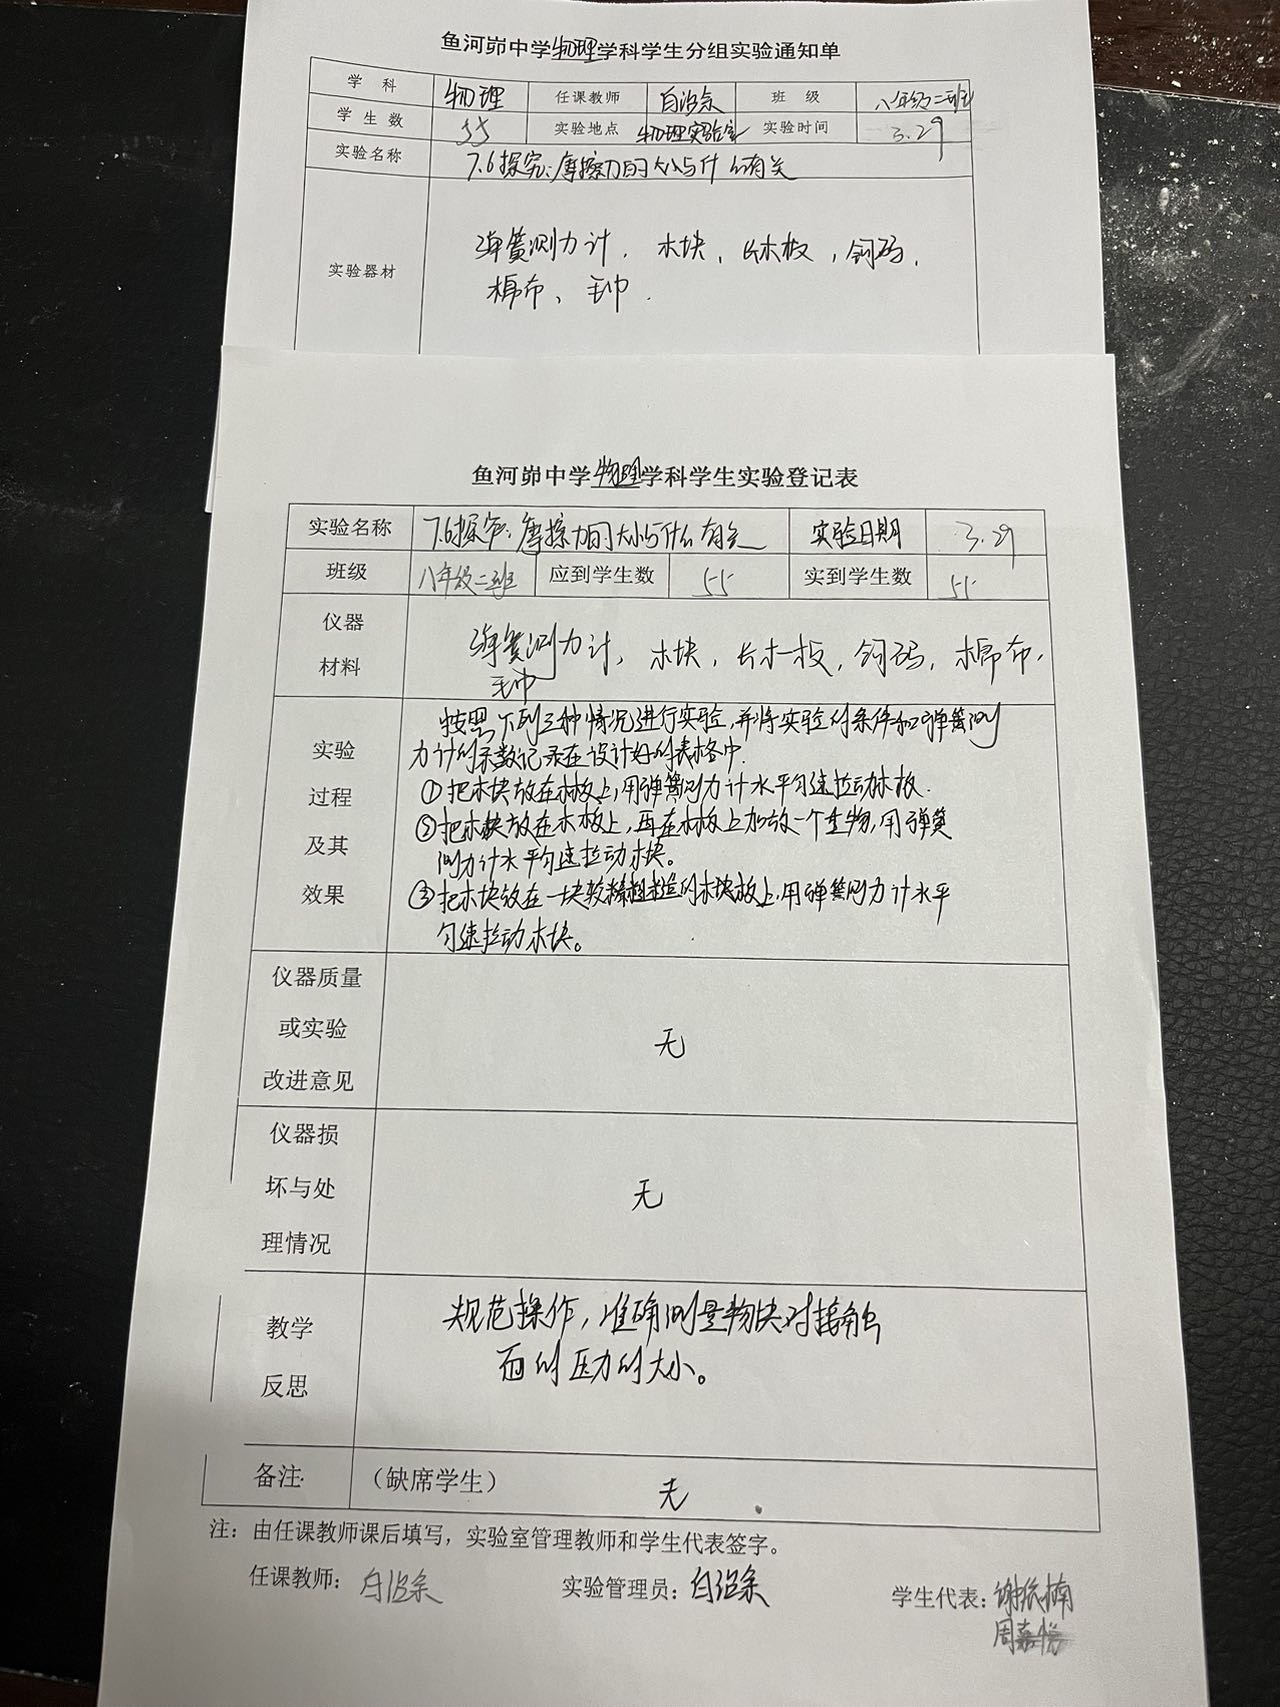 鱼河峁中学物理学科学生分组实验通知单
学 科 物理 任课教师 白治余 班 级 八年级二班
学 生 数 55 实验地点 物理实验室 实验时间 3.29
实验名称 7.6探究:摩擦力的大小与什么有关
实验器材 弹簧测力计, 木块, 长木板, 钩码,
棉布、毛巾.
鱼河峁中学物理学科学生实验登记表
实验名称 7.6探究:摩擦力的大小与什么有关 实验日期 3.29
班级 八年级二班 应到学生数 55 实到学生数 55
仪器
材料
弹簧测力计, 木块, 长木板, 钩码, 棉布,
毛巾
实验
过程
及其
效果
按照下列三种情况进行实验,并将实验的条件和弹簧测
力计的示数记录在设计好的表格中.
①把木块放在木板上,用弹簧测力计水平匀速拉动木板.
②把木块放在木板上,再在木板上加放一个重物,用弹簧
测力计水平匀速拉动木块。
③把木块放在一块较粗糙的木块板上,用弹簧测力计水平
匀速拉动木块。
仪器质量
或实验
改进意见
无
仪器损
坏与处
理情况
无
教学
反思
规范操作,准确测量物块对接触
面的压力的大小。
备注 (缺席学生) 无
注:由任课教师课后填写,实验室管理教师和学生代表签字。
任课教师:白治余 实验管理员:白治余 学生代表:谢依楠
周嘉悦